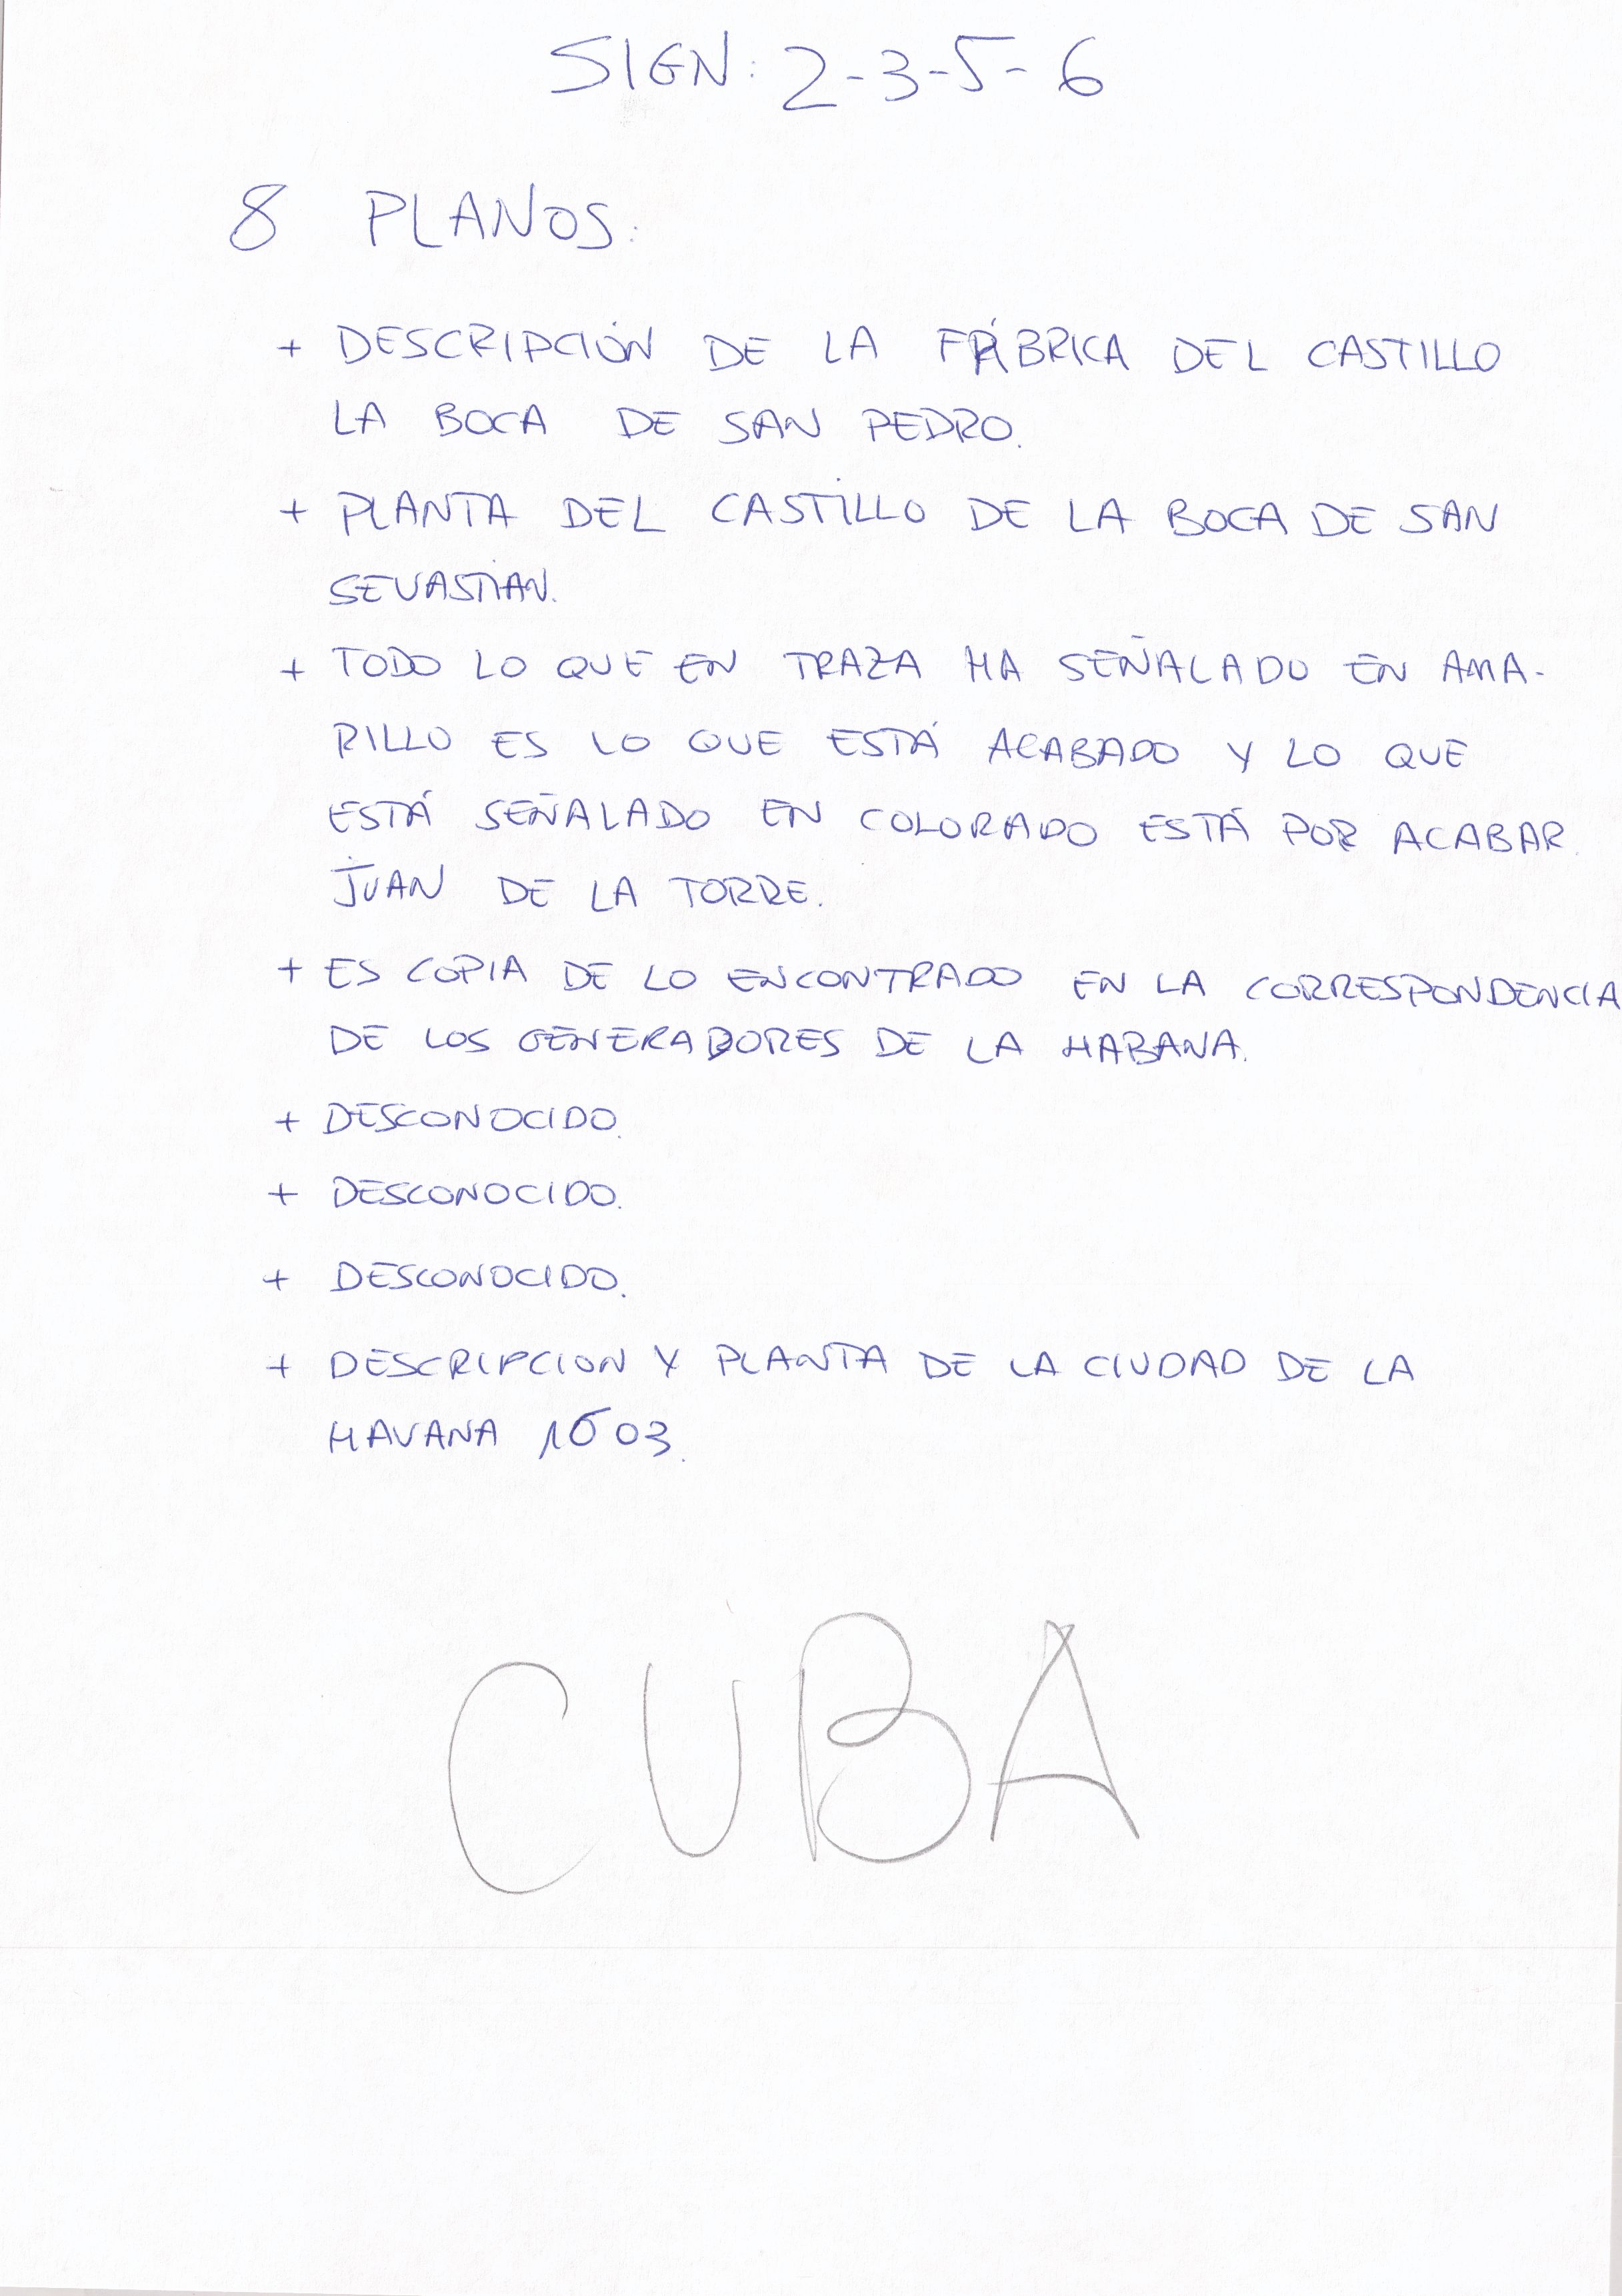 SIGN: 2-3-5-6
8 PLANOS:
+ DESCRIPCIÓN DE LA FÁBRICA DEL CASTILLO
LA BOCA DE SAN PEDRO.
+ PLANTA DEL CASTILLO DE LA BOCA DE SAN
SEVASTIAN.
+ TODO LO QUE EN TRAZA HA SEÑALADO EN AMA-
RILLO ES LO QUE ESTÁ ACABADO Y LO QUE
ESTÁ SEÑALADO EN COLORADO ESTÁ POR ACABAR.
JUAN DE LA TORRE.
+ ES COPIA DE LO ENCONTRADO EN LA CORRESPONDENCIA
DE LOS GENERADORES DE LA HABANA.
+ DESCONOCIDO.
+ DESCONOCIDO.
+ DESCONOCIDO.
+ DESCRIPCION Y PLANTA DE LA CIUDAD DE LA
HAVANA 1603.
CUBA